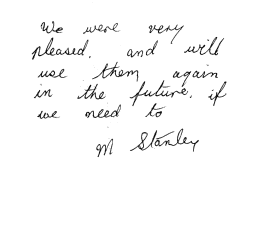 We were very
pleased, and will
use them again
in the future, if
we need to
M Stanley